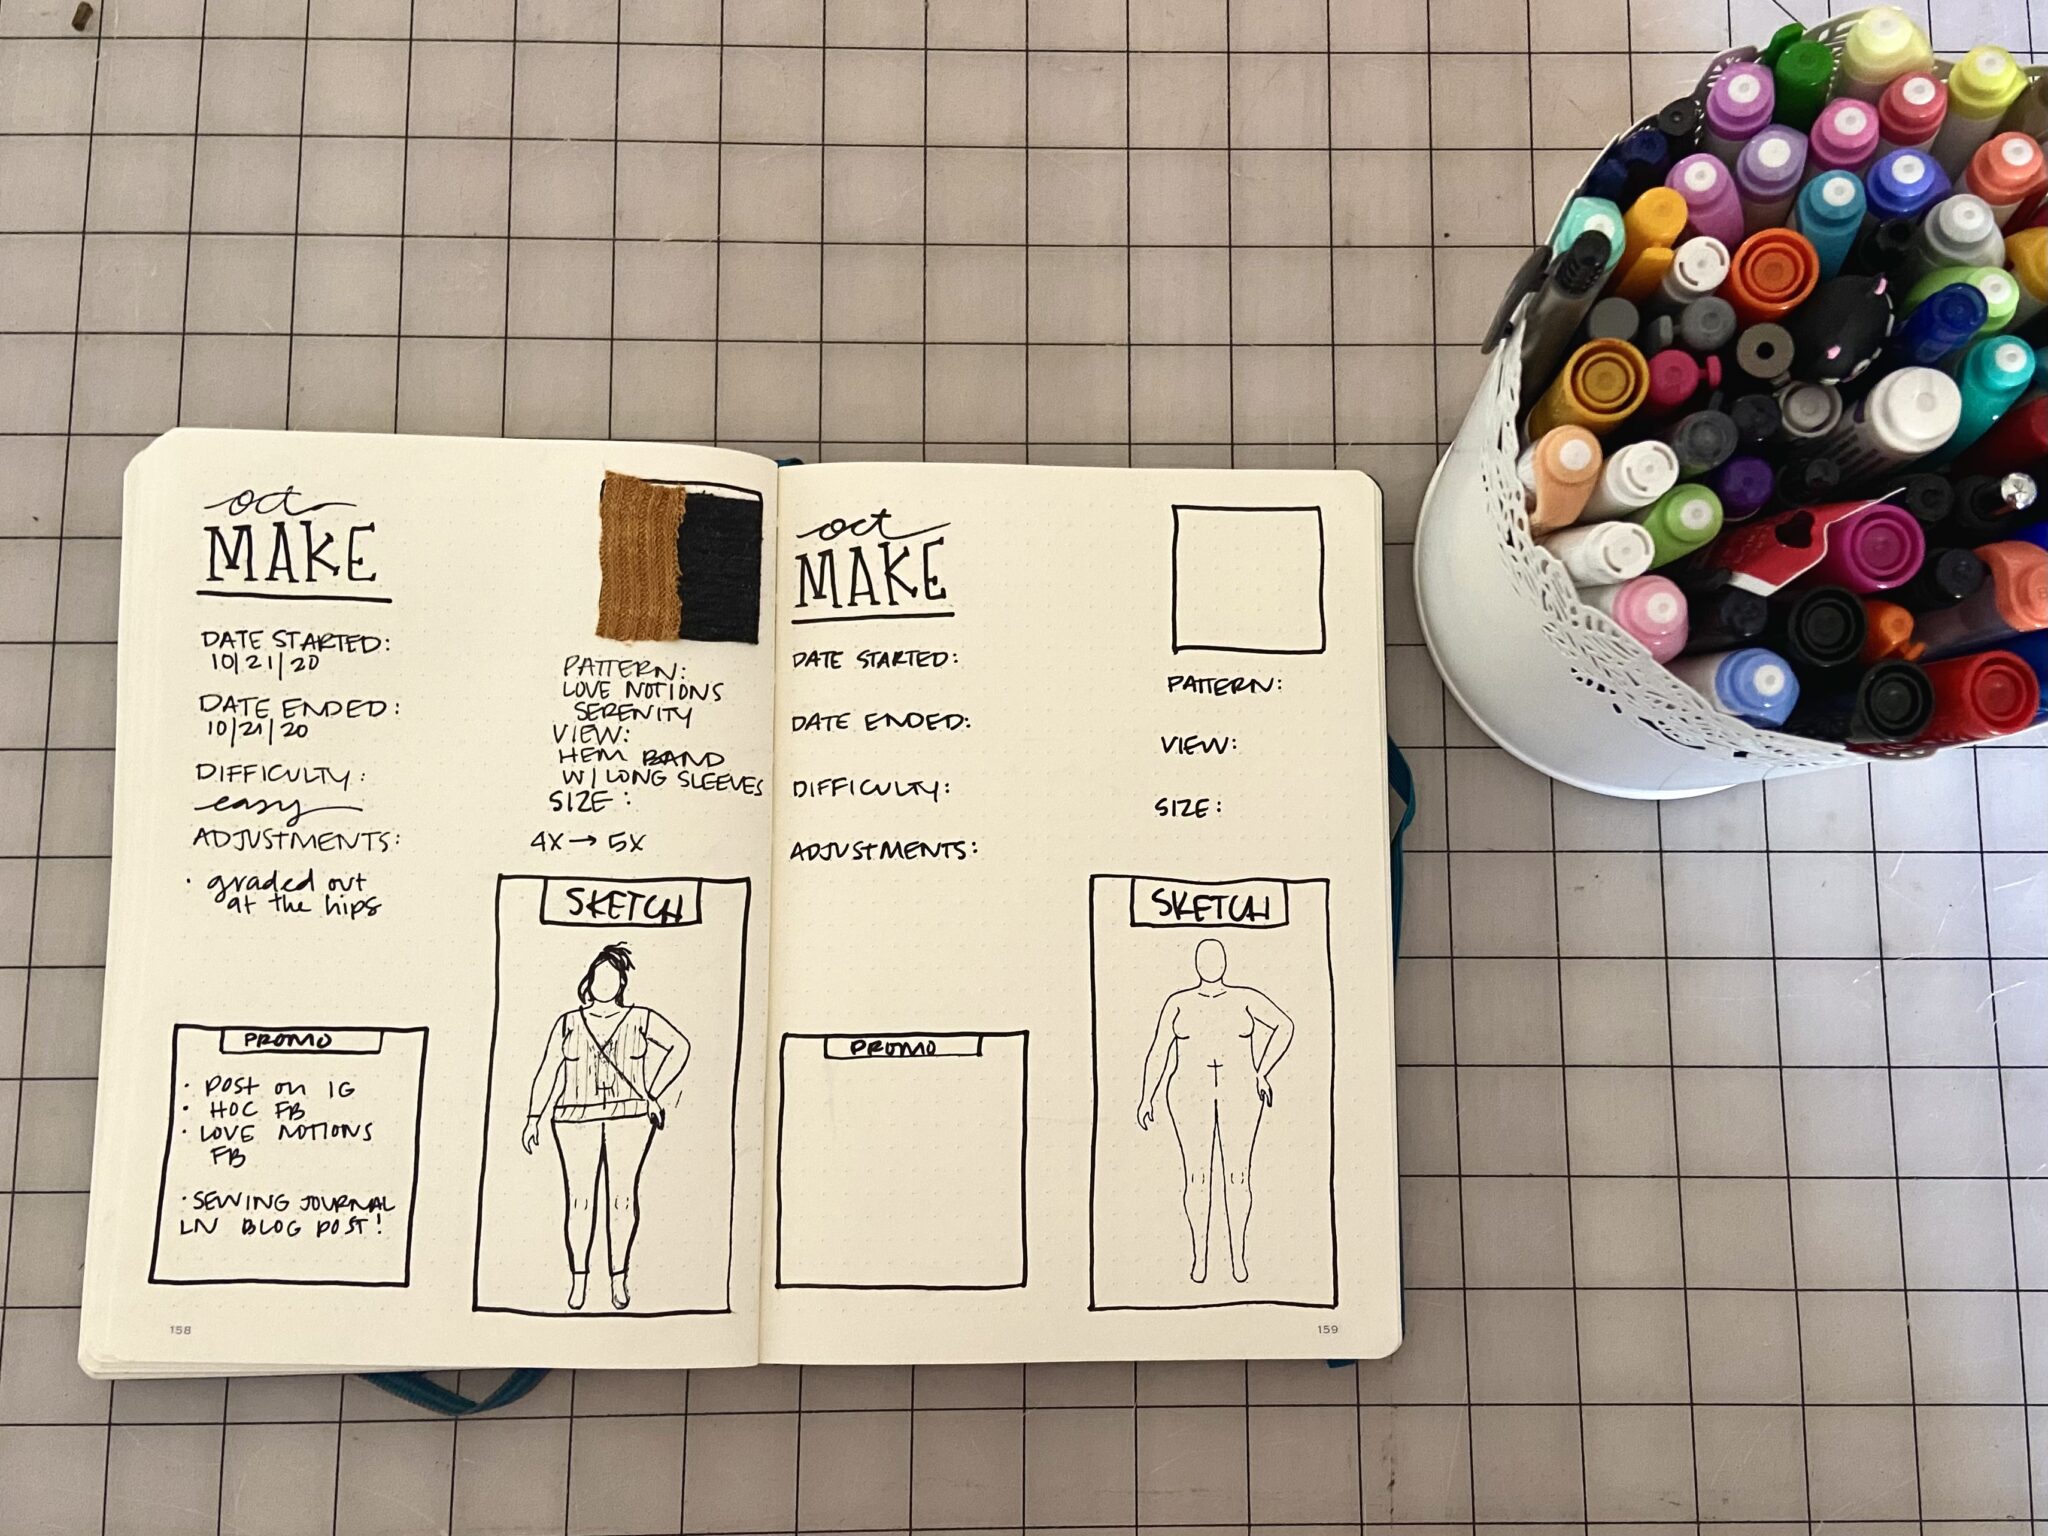 oct
MAKE
DATE STARTED:
10/21/20
DATE ENDED:
10/21/20
DIFFICULTY:
easy
ADJUSTMENTS:
· graded out
at the hips
PATTERN:
LOVE NOTIONS
SERENITY
VIEW:
HEM BAND
W/ LONG SLEEVES
SIZE:
4X → 5X
SKETCH
PROMO
· POST on IG
· HOC FB
· LOVE NOTIONS
FB
· SEWING JOURNAL
LN BLOG POST!
158
oct
MAKE
DATE STARTED:
DATE ENDED:
DIFFICULTY:
ADJUSTMENTS:
PATTERN:
VIEW:
SIZE:
SKETCH
PROMO
159